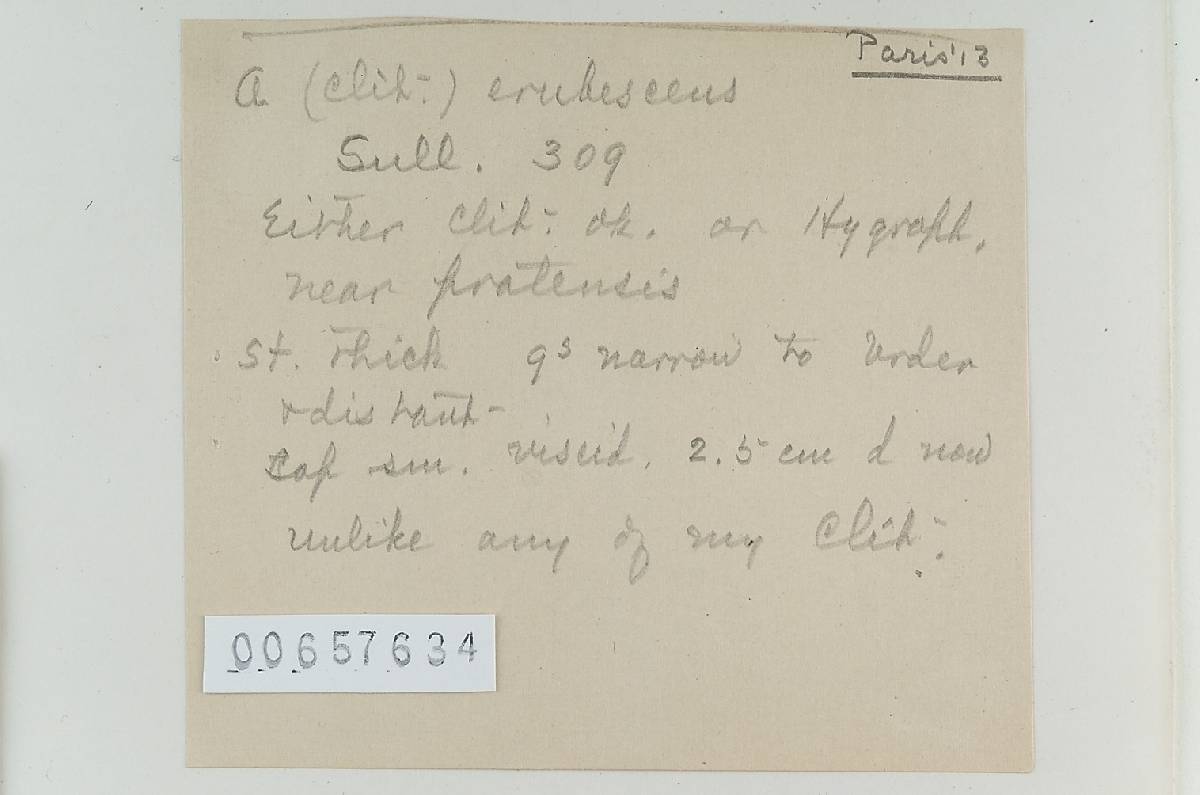 Paris '13
A (Clit.) erubescens
Sull. 309
Either Clit. ok. or Hygroph.
near pratensis
St. thick gs narrow to border
& distant-
Cap sm. viscid. 2.5 cm d now
unlike any of my Clit.
00657634